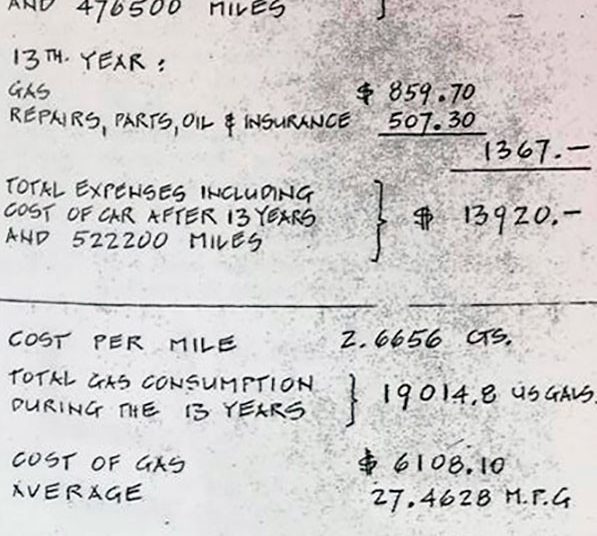 AND 476500 MILES }
13TH. YEAR:
GAS $ 859.70
REPAIRS, PARTS, OIL & INSURANCE 507.30
1367.-
TOTAL EXPENSES INCLUDING
COST OF CAR AFTER 13 YEARS } $ 13920.-
AND 522200 MILES
COST PER MILE 2.6656 CTS.
TOTAL GAS CONSUMPTION } 19014.8 US GALS.
DURING THE 13 YEARS
COST OF GAS $ 6108.10
AVERAGE 27.4628 M.P.G